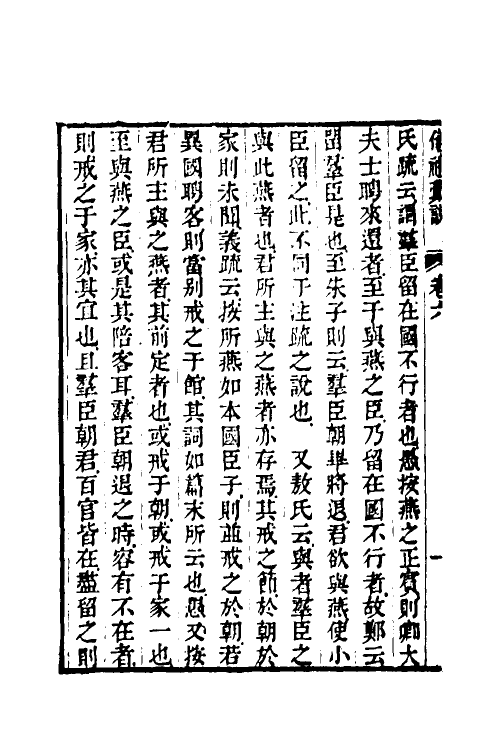 儀禮 卷六
氏疏云謂羣臣留在國不行者也愚按燕之正賓則卿大
夫士聘來還者至于與燕之臣乃留在國不行者故鄭云
留羣臣是也至朱子則云羣臣朝畢將退君欲與燕使小
臣留之此不同于注疏之說也 又敖氏云與者羣臣之
與此燕者也君所主與之燕者亦存焉其戒之節於朝於
家則未聞義疏云按所燕如本國臣子則並戒之於朝若
異國聘客則當别戒之于館其詞如篇末所云也愚又按
君所主與之燕者其前定者也或戒于朝或戒于家一也
至與燕之臣或是其陪客耳羣臣朝退之時容有不在者
則戒之于家亦其宜也且羣臣朝君百官皆在盡留之則